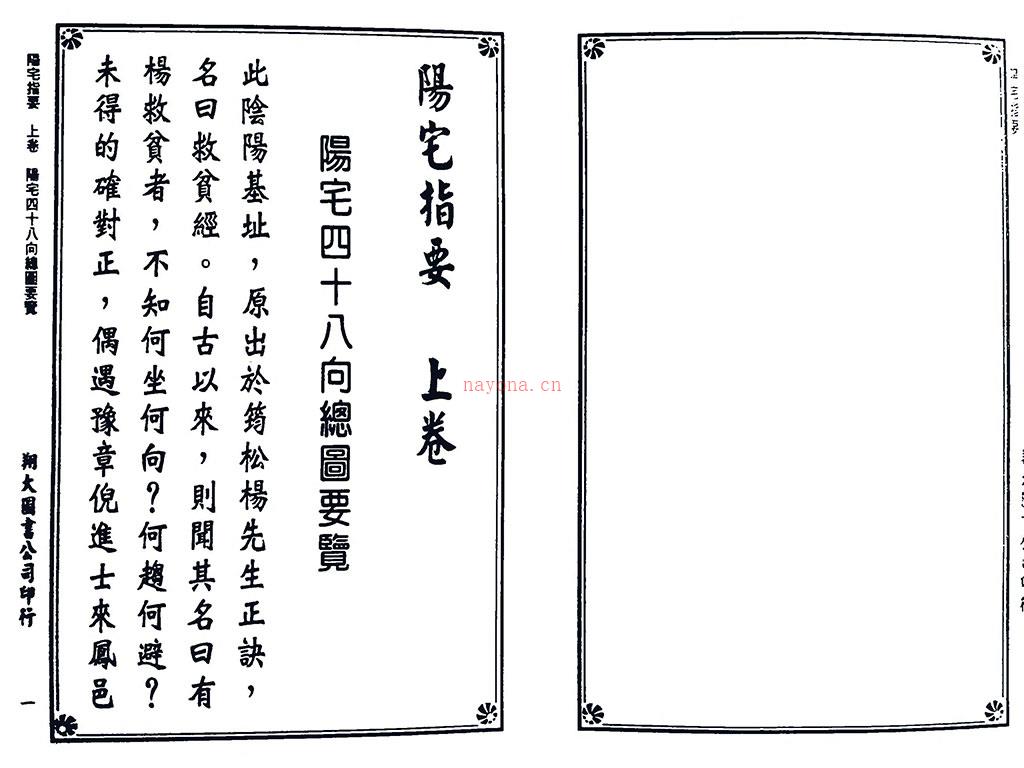 陽宅指要　上卷
陽宅四十八向總圖要覽
此陰陽基址，原出於筠松楊先生正訣，
名曰救貧經。自古以來，則聞其名曰有
楊救貧者，不知何坐何向？何趨何避？
未得的確對正，偶遇豫章倪進士來鳳邑
陽宅指要　上卷　陽宅四十八向總圖要覽
翔大圖書公司印行
一
nayona.cn